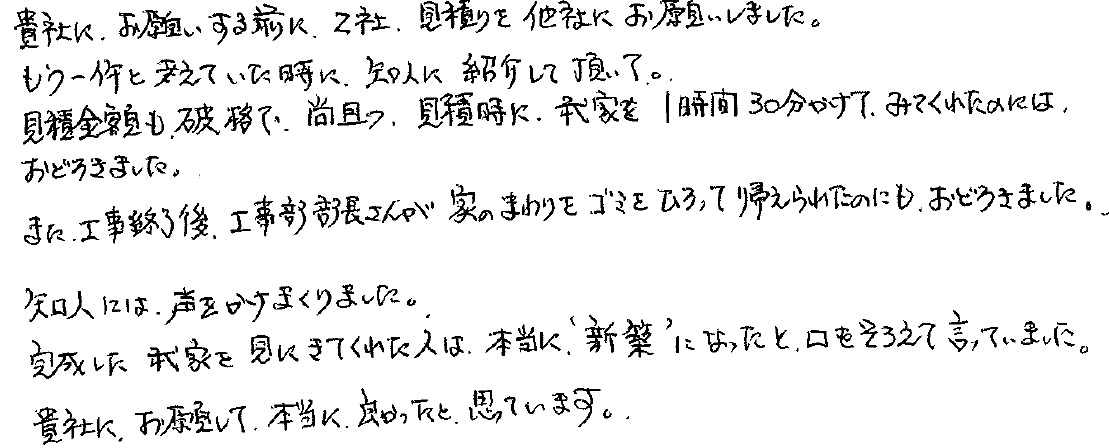 貴社に、お願いする前に、2社、見積りを他社にお願いしました。
もう一件と考えていた時に、知人に紹介して頂いて。
見積金額も、破格で、尚且つ、見積時に、我家を1時間30分かけて、みてくれたのには、
おどろきました。
また、工事終了後、工事部部長さんが家のまわりをゴミをひろって帰えられたのにも、おどろきました。
知人には、声をかけまくりました。
完成した我家を見にきてくれた人は、本当に、'新築'になったと、口をそろえて言っていました。
貴社に、お願して、本当に、良かったと、思っています。